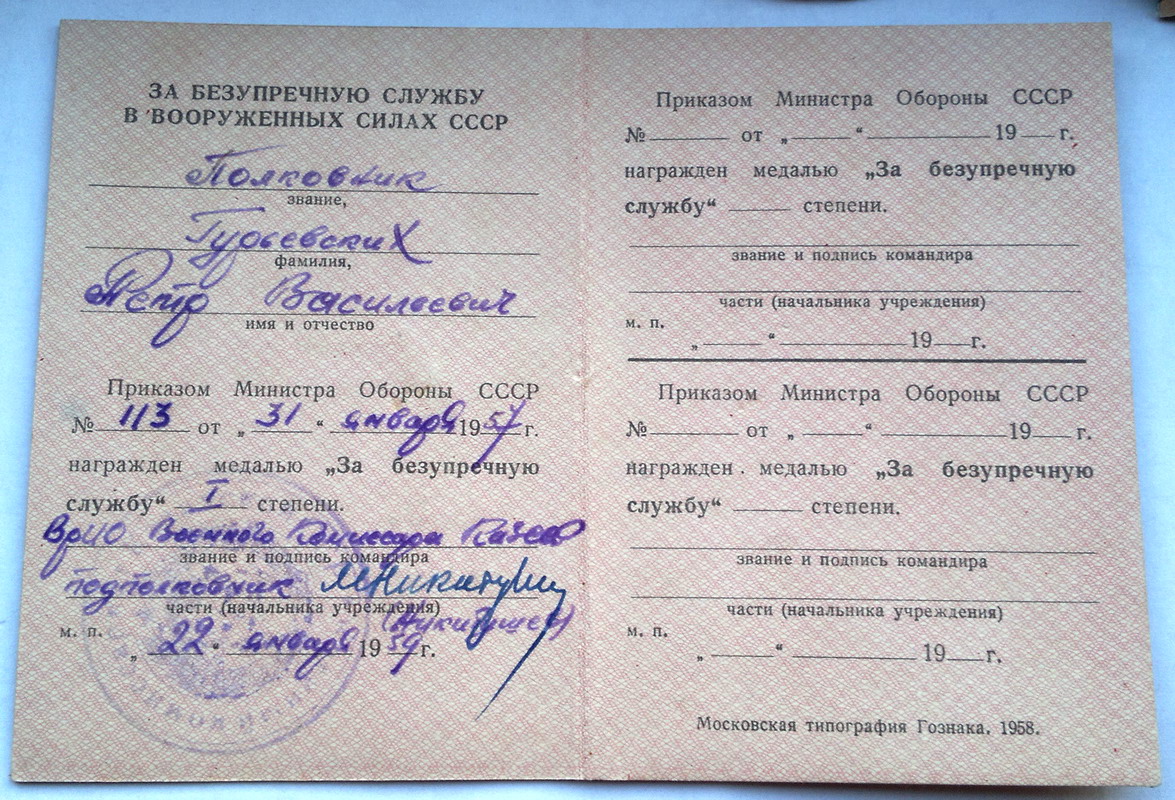 ЗА БЕЗУПРЕЧНУЮ СЛУЖБУ
В ВООРУЖЕННЫХ СИЛАХ СССР
Полковник
звание,
Гурьевских
фамилия,
Петр Васильевич
имя и отчество
Приказом Министра Обороны СССР
№ 113 от „ 31 “ января 1957 г.
награжден медалью „За безупречную
службу“ I степени.
ВрИО Военного Комиссара
звание и подпись командира
подполковник
части (начальника учреждения)
м. п.
„ 22 “ января 1959 г.
Приказом Министра Обороны СССР
№ от „ “ 19 г.
награжден медалью „За безупречную
службу“ степени.
звание и подпись командира
части (начальника учреждения)
м. п.
„ “ 19 г.
Приказом Министра Обороны СССР
№ от „ “ 19 г.
награжден медалью „За безупречную
службу“ степени.
звание и подпись командира
части (начальника учреждения)
м. п.
„ “ 19 г.
Московская типография Гознака. 1958.